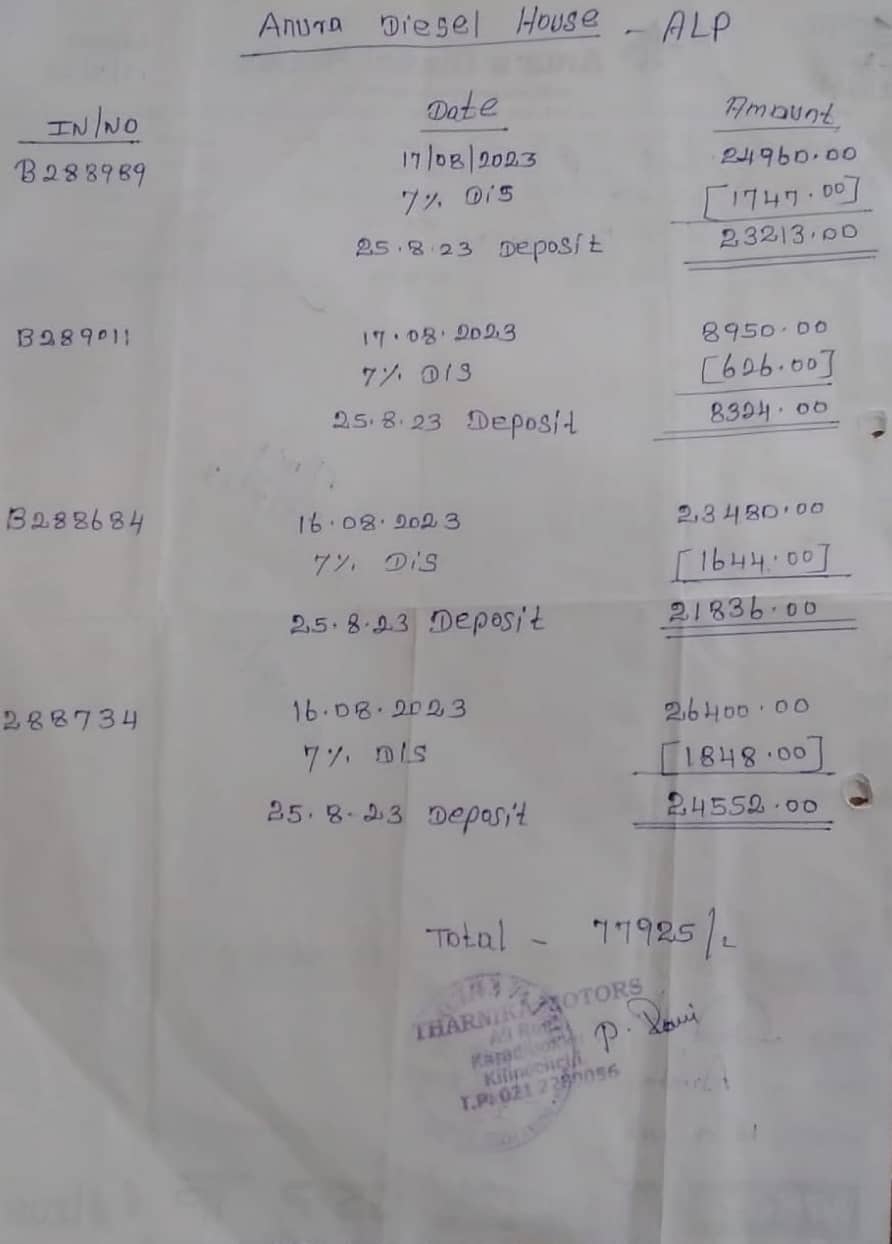 Anura Diesel House - ALP
IN/NO Date Amount
B288989 17/08/2023 24960.00
7% Dis [1747.00]
25.8.23 Deposit 23213.00
B289011 17.08.2023 8950.00
7% DIS [626.00]
25.8.23 Deposit 8324.00
B288684 16.08.2023 23480.00
7% Dis [1644.00]
25.8.23 Deposit 21836.00
288734 16.08.2023 26400.00
7% DIS [1848.00]
25.8.23 Deposit 24552.00
Total - 77925/-
THARNIKA MOTORS
A9 Road
Kilinochchi
T.P: 021
P. Ravi